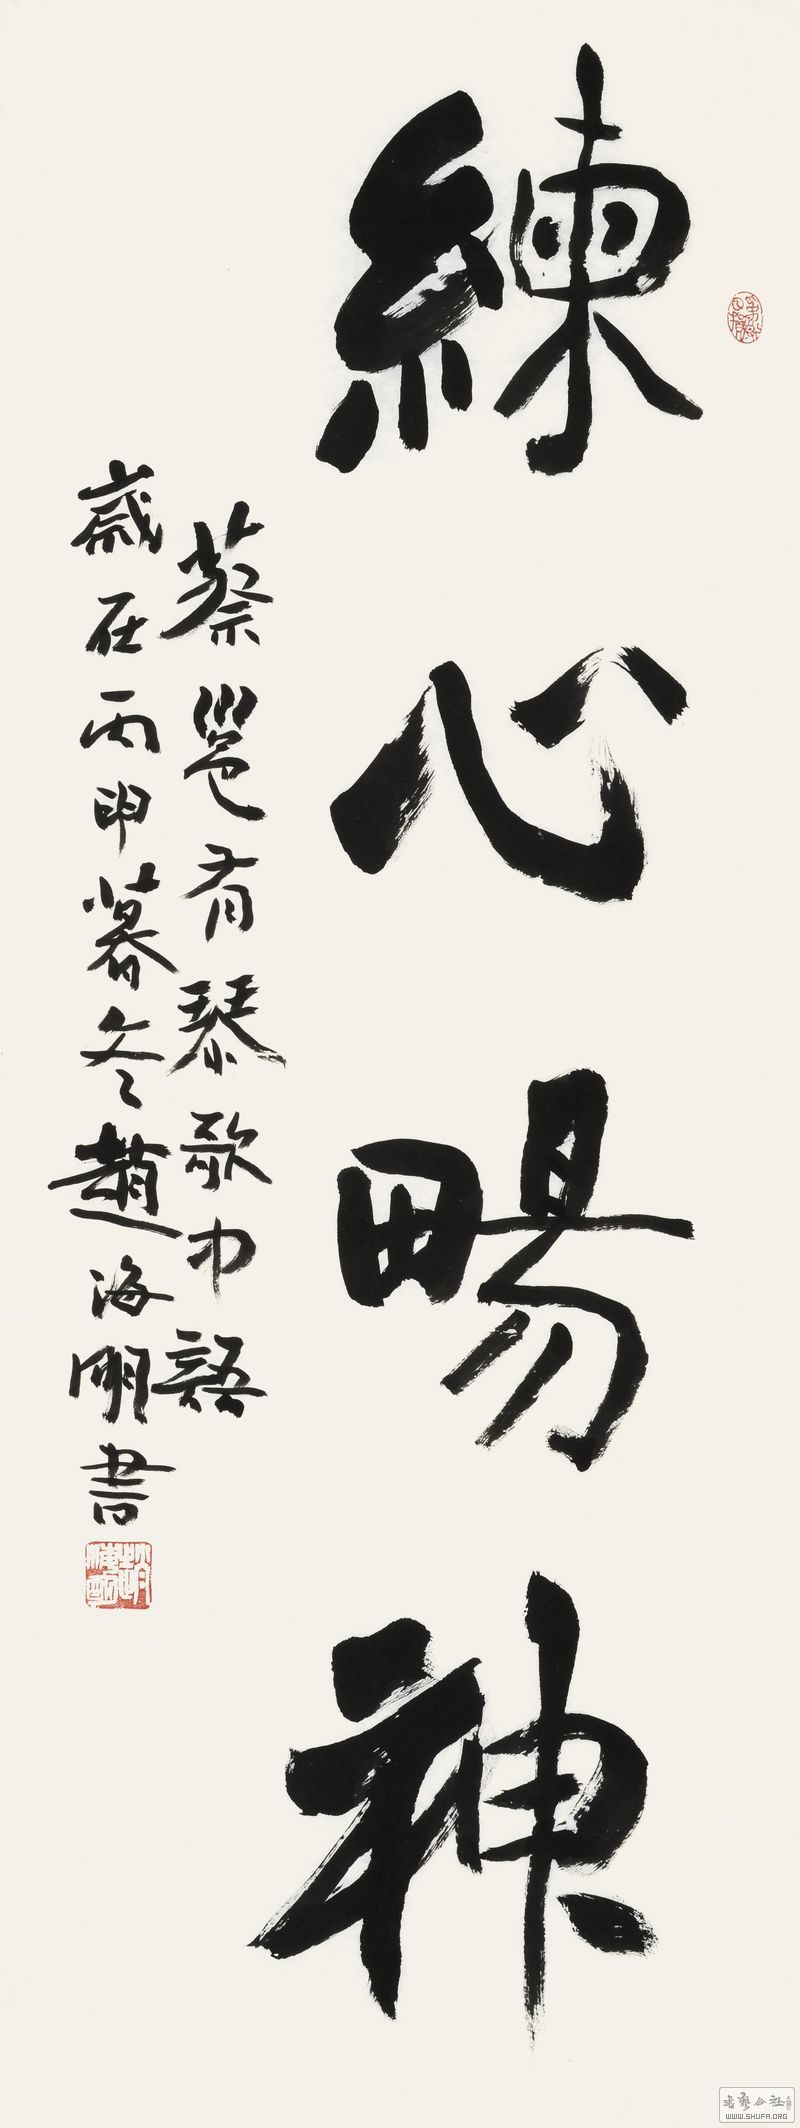 練心暢神
蔡邕有琴歌中語
歲在丙申暮冬趙海明書
書藝公社
WWW.SHUFA.ORG